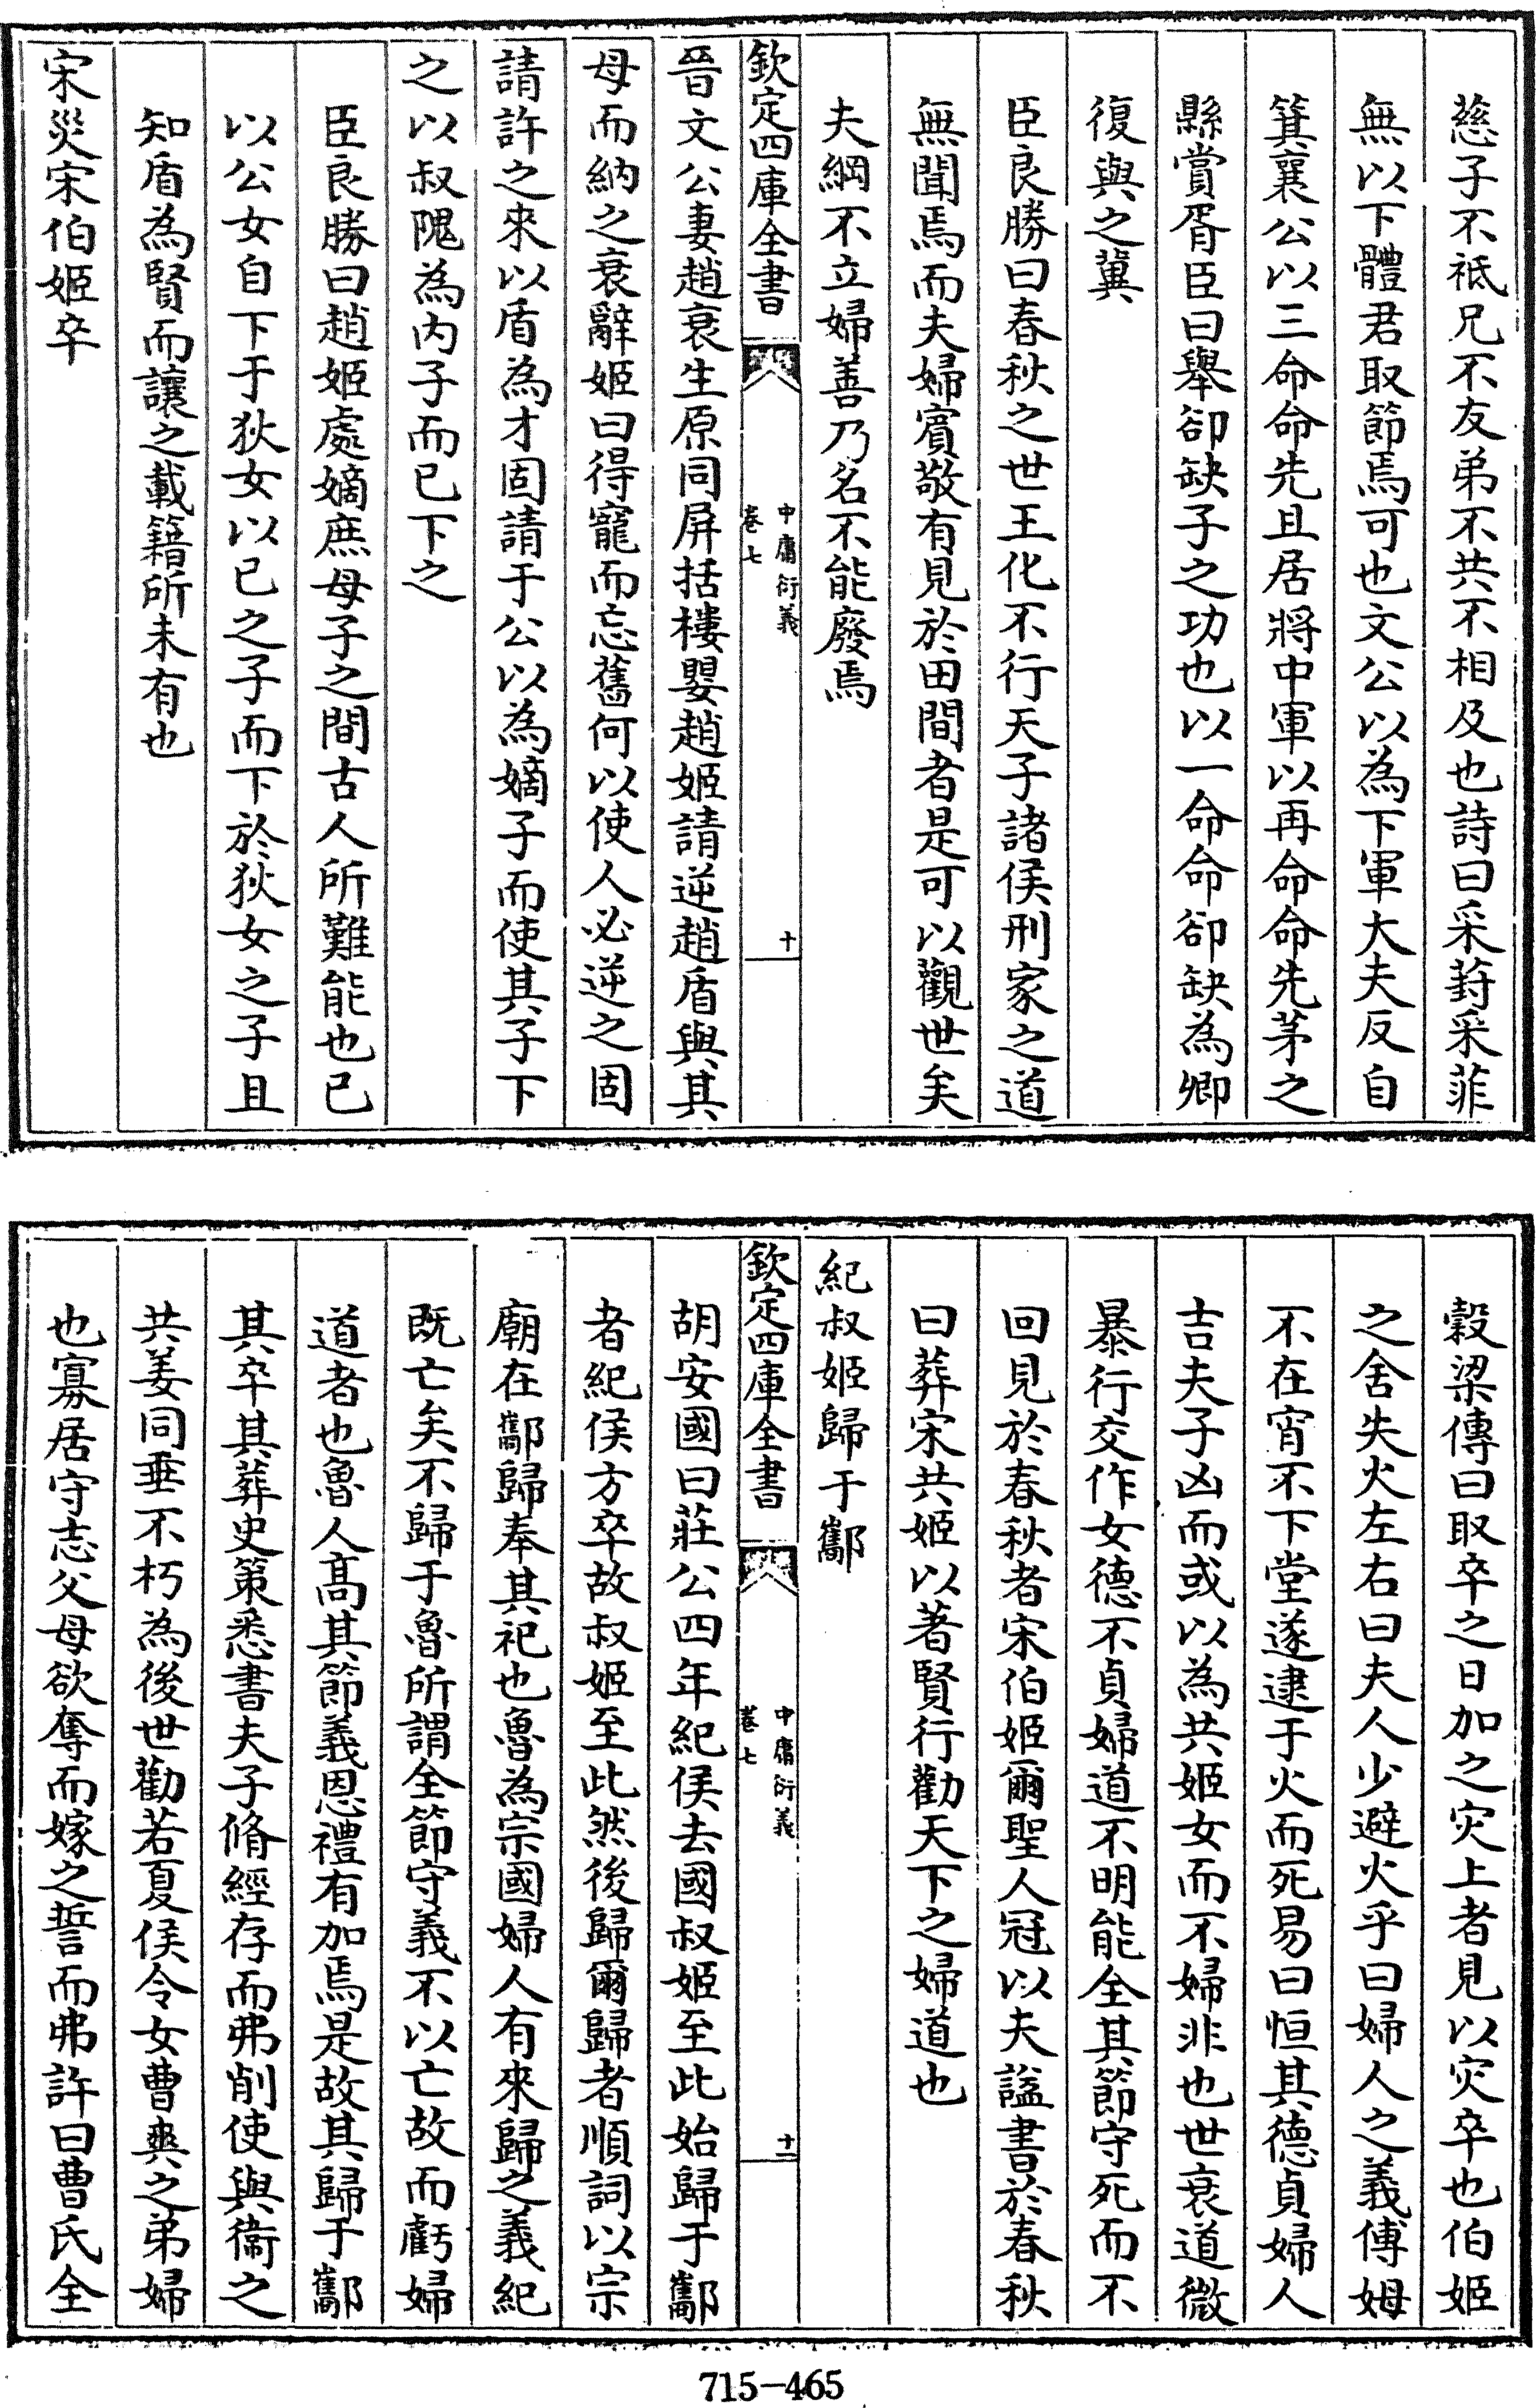 慈子不祗兄不友弟不共不相及也詩曰采葑采菲
無以下體君取節焉可也文公以為下軍大夫反自
箕襄公以三命命先且居將中軍以再命命先茅之
縣賞胥臣曰舉郤缺子之功也以一命命郤缺為卿
復與之冀
臣良勝曰春秋之世王化不行天子諸侯刑家之道
無聞焉而夫婦賓敬有見於田間者是可以觀世矣
夫綱不立婦善乃名不能廢焉
欽定四庫全書
中庸衍義
卷七
十
晉文公妻趙衰生原同屏括樓嬰趙姬請逆趙盾與其
母而納之衰辭姬曰得寵而忘舊何以使人必逆之固
請許之來以盾為才固請于公以為嫡子而使其子下
之以叔隗為内子而已下之
臣良勝曰趙姬處嫡庶母子之間古人所難能也已
以公女自下于狄女以已之子而下於狄女之子且
知盾為賢而讓之載籍所未有也
宋災宋伯姬卒
穀梁傳曰取卒之日加之灾上者見以灾卒也伯姬
之舍失火左右曰夫人少避火乎曰婦人之義傅姆
不在宵不下堂遂逮于火而死易曰恒其德貞婦人
吉夫子凶而或以為共姬女而不婦非也世衰道微
暴行交作女德不貞婦道不明能全其節守死而不
回見於春秋者宋伯姬爾聖人冠以夫諡書於春秋
曰葬宋共姬以著賢行勸天下之婦道也
紀叔姬歸于酅
欽定四庫全書
中庸衍義
卷七
十一
胡安國曰莊公四年紀侯去國叔姬至此始歸于酅
者紀侯方卒故叔姬至此然後歸爾歸者順詞以宗
廟在酅歸奉其祀也魯為宗國婦人有來歸之義紀
既亡矣不歸于魯所謂全節守義不以亡故而虧婦
道者也魯人高其節義恩禮有加焉是故其歸于酅
其卒其葬史策悉書夫子脩經存而弗削使與衞之
共姜同垂不朽為後世勸若夏侯令女曹爽之弟婦
也寡居守志父母欲奪而嫁之誓而弗許曰曹氏全
715-465